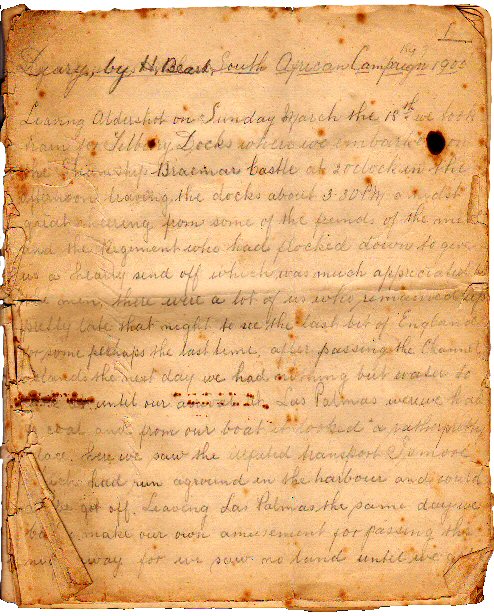 1
Diary, by H. Beart, South African Campaign 1900
Leaving Aldershot on Sunday March the 18th we took
train for Tilbury Docks where we embarked on
the Braemar Castle at 2 oclock in the
afternoon leaving the docks about 3-30 PM amidst
great cheering from some of the friends of the men
and the Regiment who had flocked down to give
us a hearty send off which was much appreciated
men, there were a lot of us who remained up
pretty late that night to see the last bit of England
for some perhaps the last time, after passing the Channel
Islands the next day we had nothing but water to
until our arrival at Las Palmas were we had
to coal and from our boat it looked a rather pretty
place, here we saw the transport
which had run aground in the harbour and could
get off. Leaving Las Palmas the same day we
had make our own amusement for passing the
way for we saw no land until we